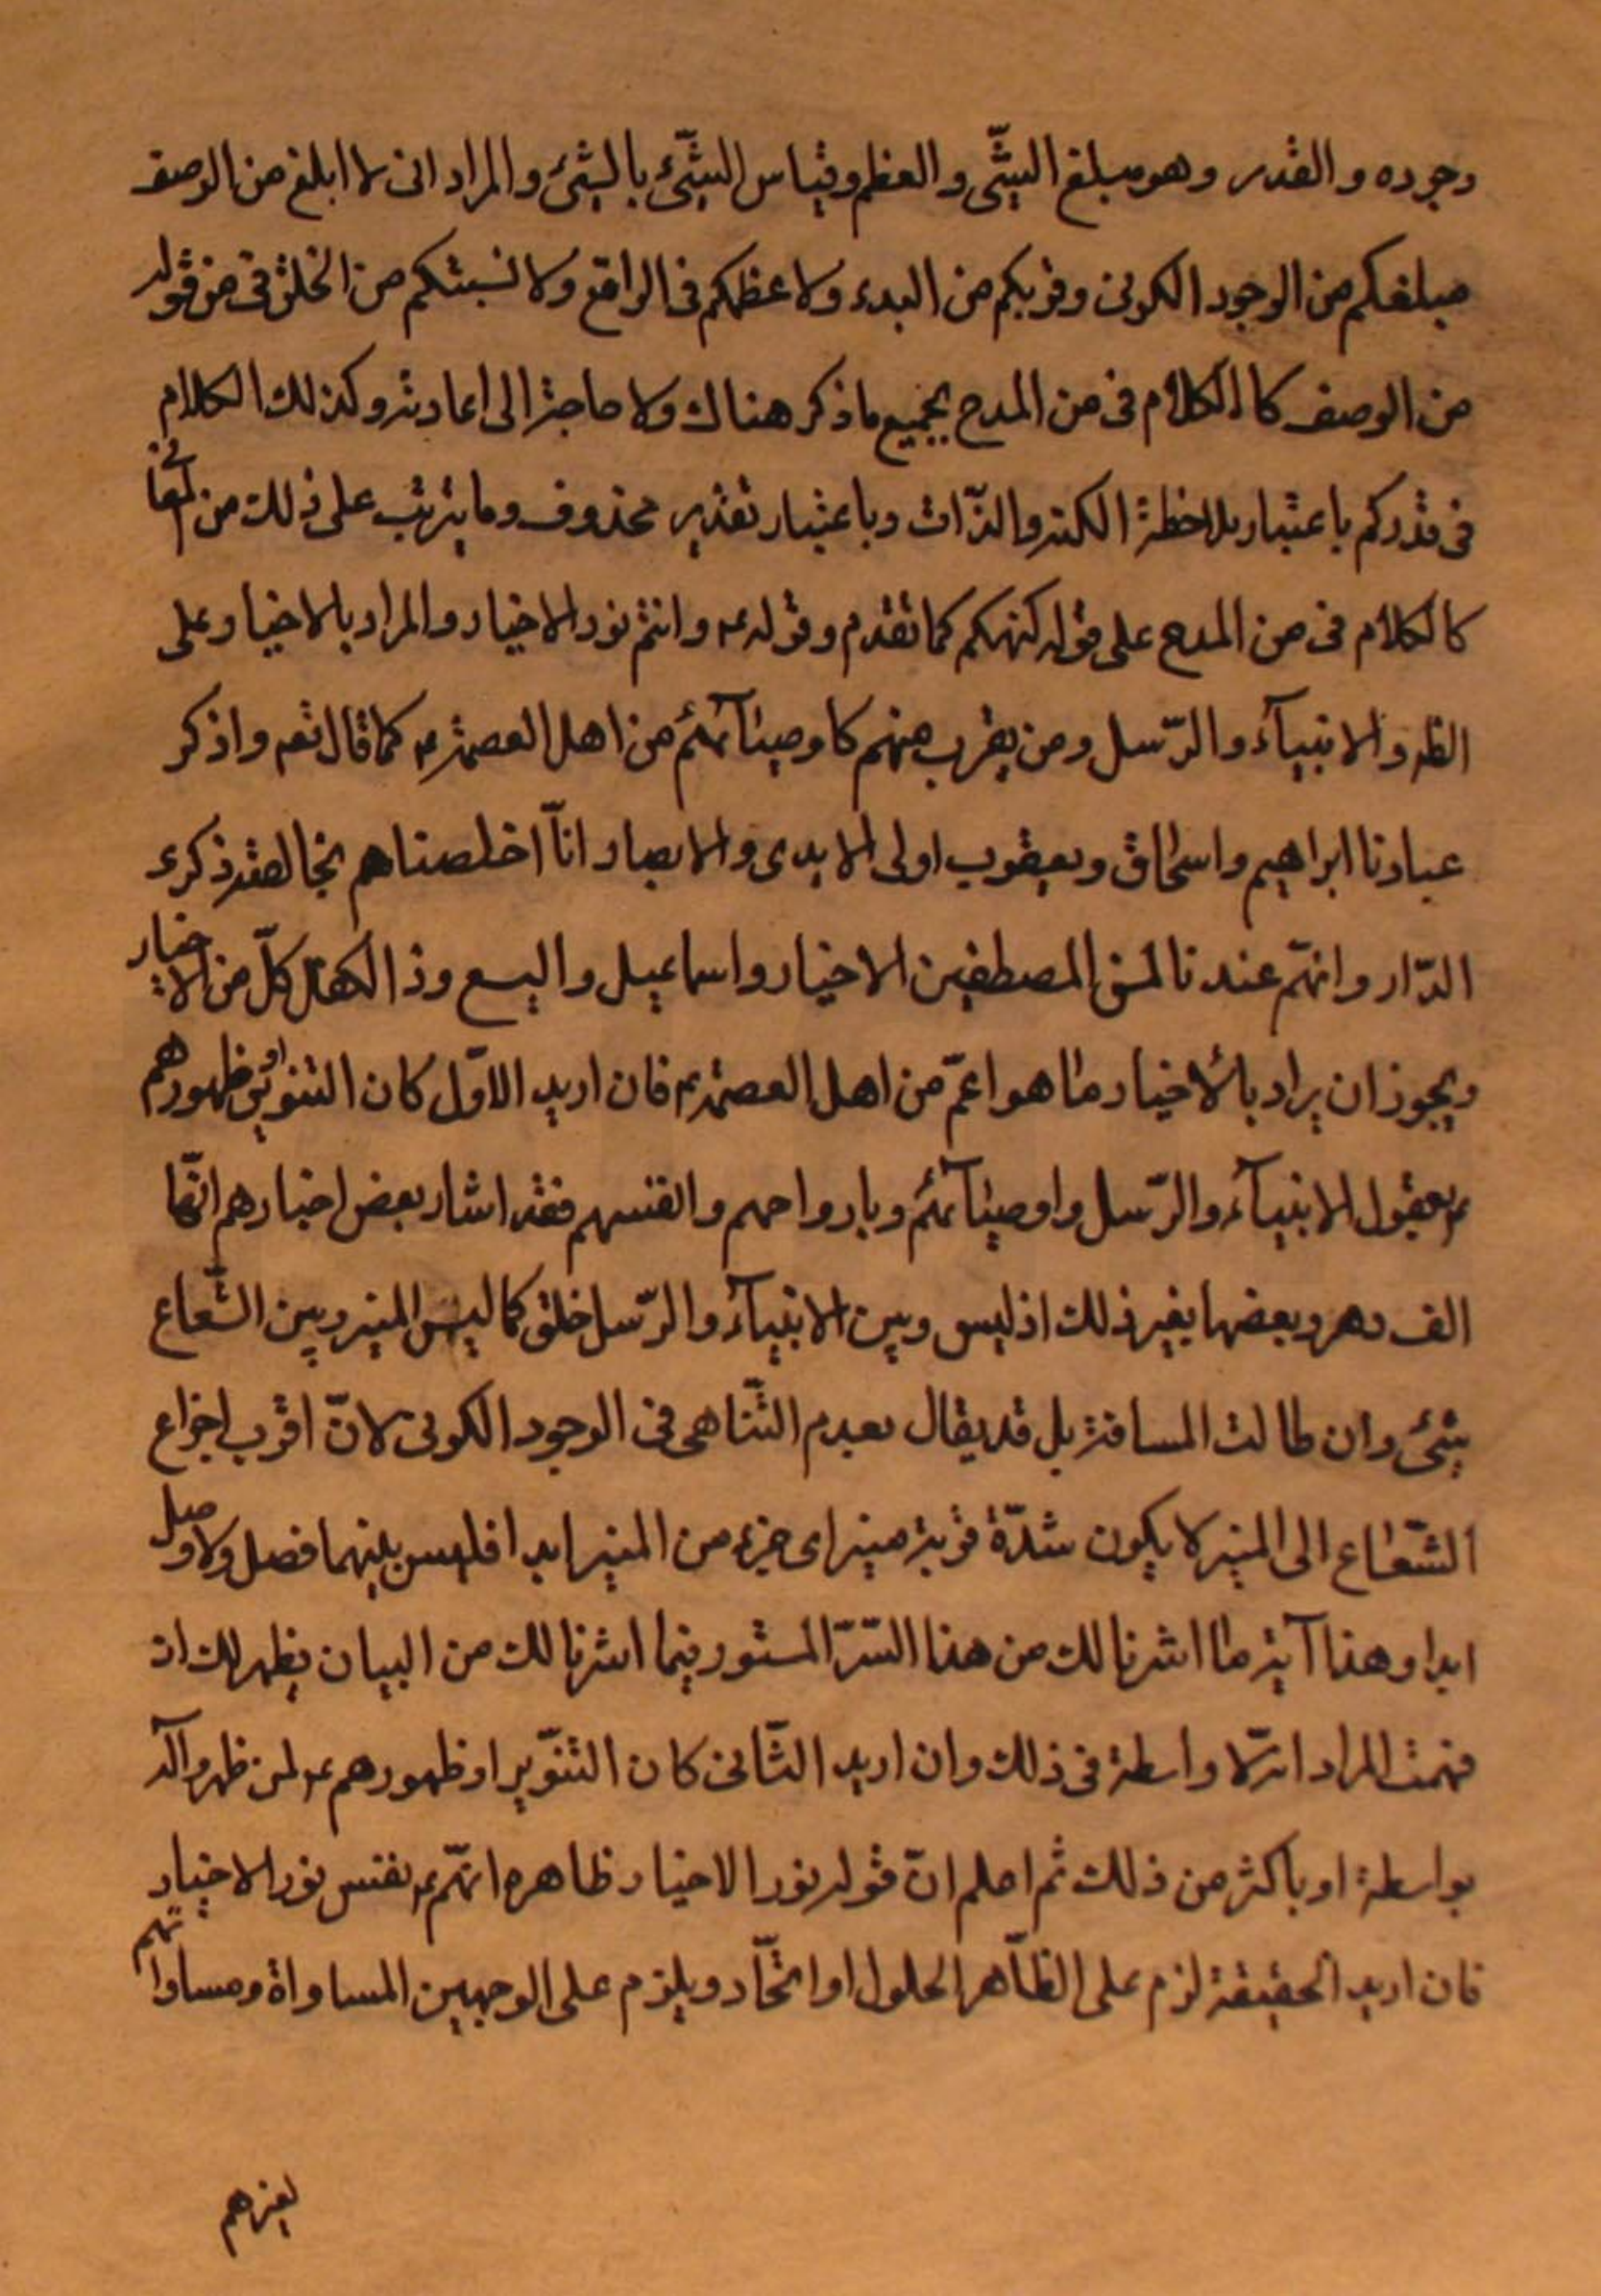 وجوده والقدر وهو مبلغ الشّئ والعظم وقياس الشّئ بالشئ والمراد انى لا ابلغ من الوصف
مبلغكم من الوجود الكونى وقربكم من البدء ولا عظمكم فى الواقع ولا نسبتكم من الخلق فى من قوله
من الوصف كالكلام فى من المدح بجميع ما ذكر هناك ولا حاجة الى اعادته وكذلك الكلام
فى قدركم باعتبار ملاحظة الكنه والذّات وباعتبار تقدير محذوف وما يترتب على ذلك من المعانى
كالكلام فى من المدح على قوله كنهكم كما تقدم وقوله ع وانتم نور الاخيار والمراد بالاخيار على
الظه والانبيآء والرّسل ومن يقرب منهم كاوصيآئهم من اهل العصمة ع كما قال تعم واذكر
عبادنا ابراهيم واسحاق ويعقوب اولى الايدى والابصار انّا اخلصناهم بخالصة ذكرى
الدّار وانهّم عندنا لمن المصطفين الاخيار واسماعيل واليسع وذا الكفل كلّ من الاخيار
ويجوز ان يراد بالاخيار ما هو اعمّ من اهل العصمة ع فان اريد الاوّل كان التنوير او ظهورهم
ع بعقول الانبيآء والرّسل واوصيآئهم وبارواحهم وانفسهم فقد اشار بعض اخبارهم انهّا
الف دهر وبعضها بغير ذلك اذ ليس وبين الانبيآء والرّسل خلق كما ليس المنير وبين الشّعاع
شئ وان طالت المسافة بل قد يقال بعدم التّناهى فى الوجود الكونى لانّ اقرب اجزاء
الشّعاع الى المنير لا يكون شدّة قربة منير اى جزء من المنير ابدا فليس بينهما فصل ولا وصل
ابدا وهذا آية ما اشرنا لك من هذا السّرّ المستور فيما اشرنا لك من البيان يظهر لك ان
فهمت المراد انه لا واسطة فى ذلك وان اريد الثّانى كان التنوّير او ظهورهم ع لمن ظهروا له
بواسطة او باكثر من ذلك ثم اعلم انّ قوله نور الاخيار ظاهره انهّم ع نفس نور الاخيار
فان اريد الحقيقة لزم على الظّاهر الحلول او اتحّاد ويلزم على الوجهين المساواة ومساواتهم
لغيرهم